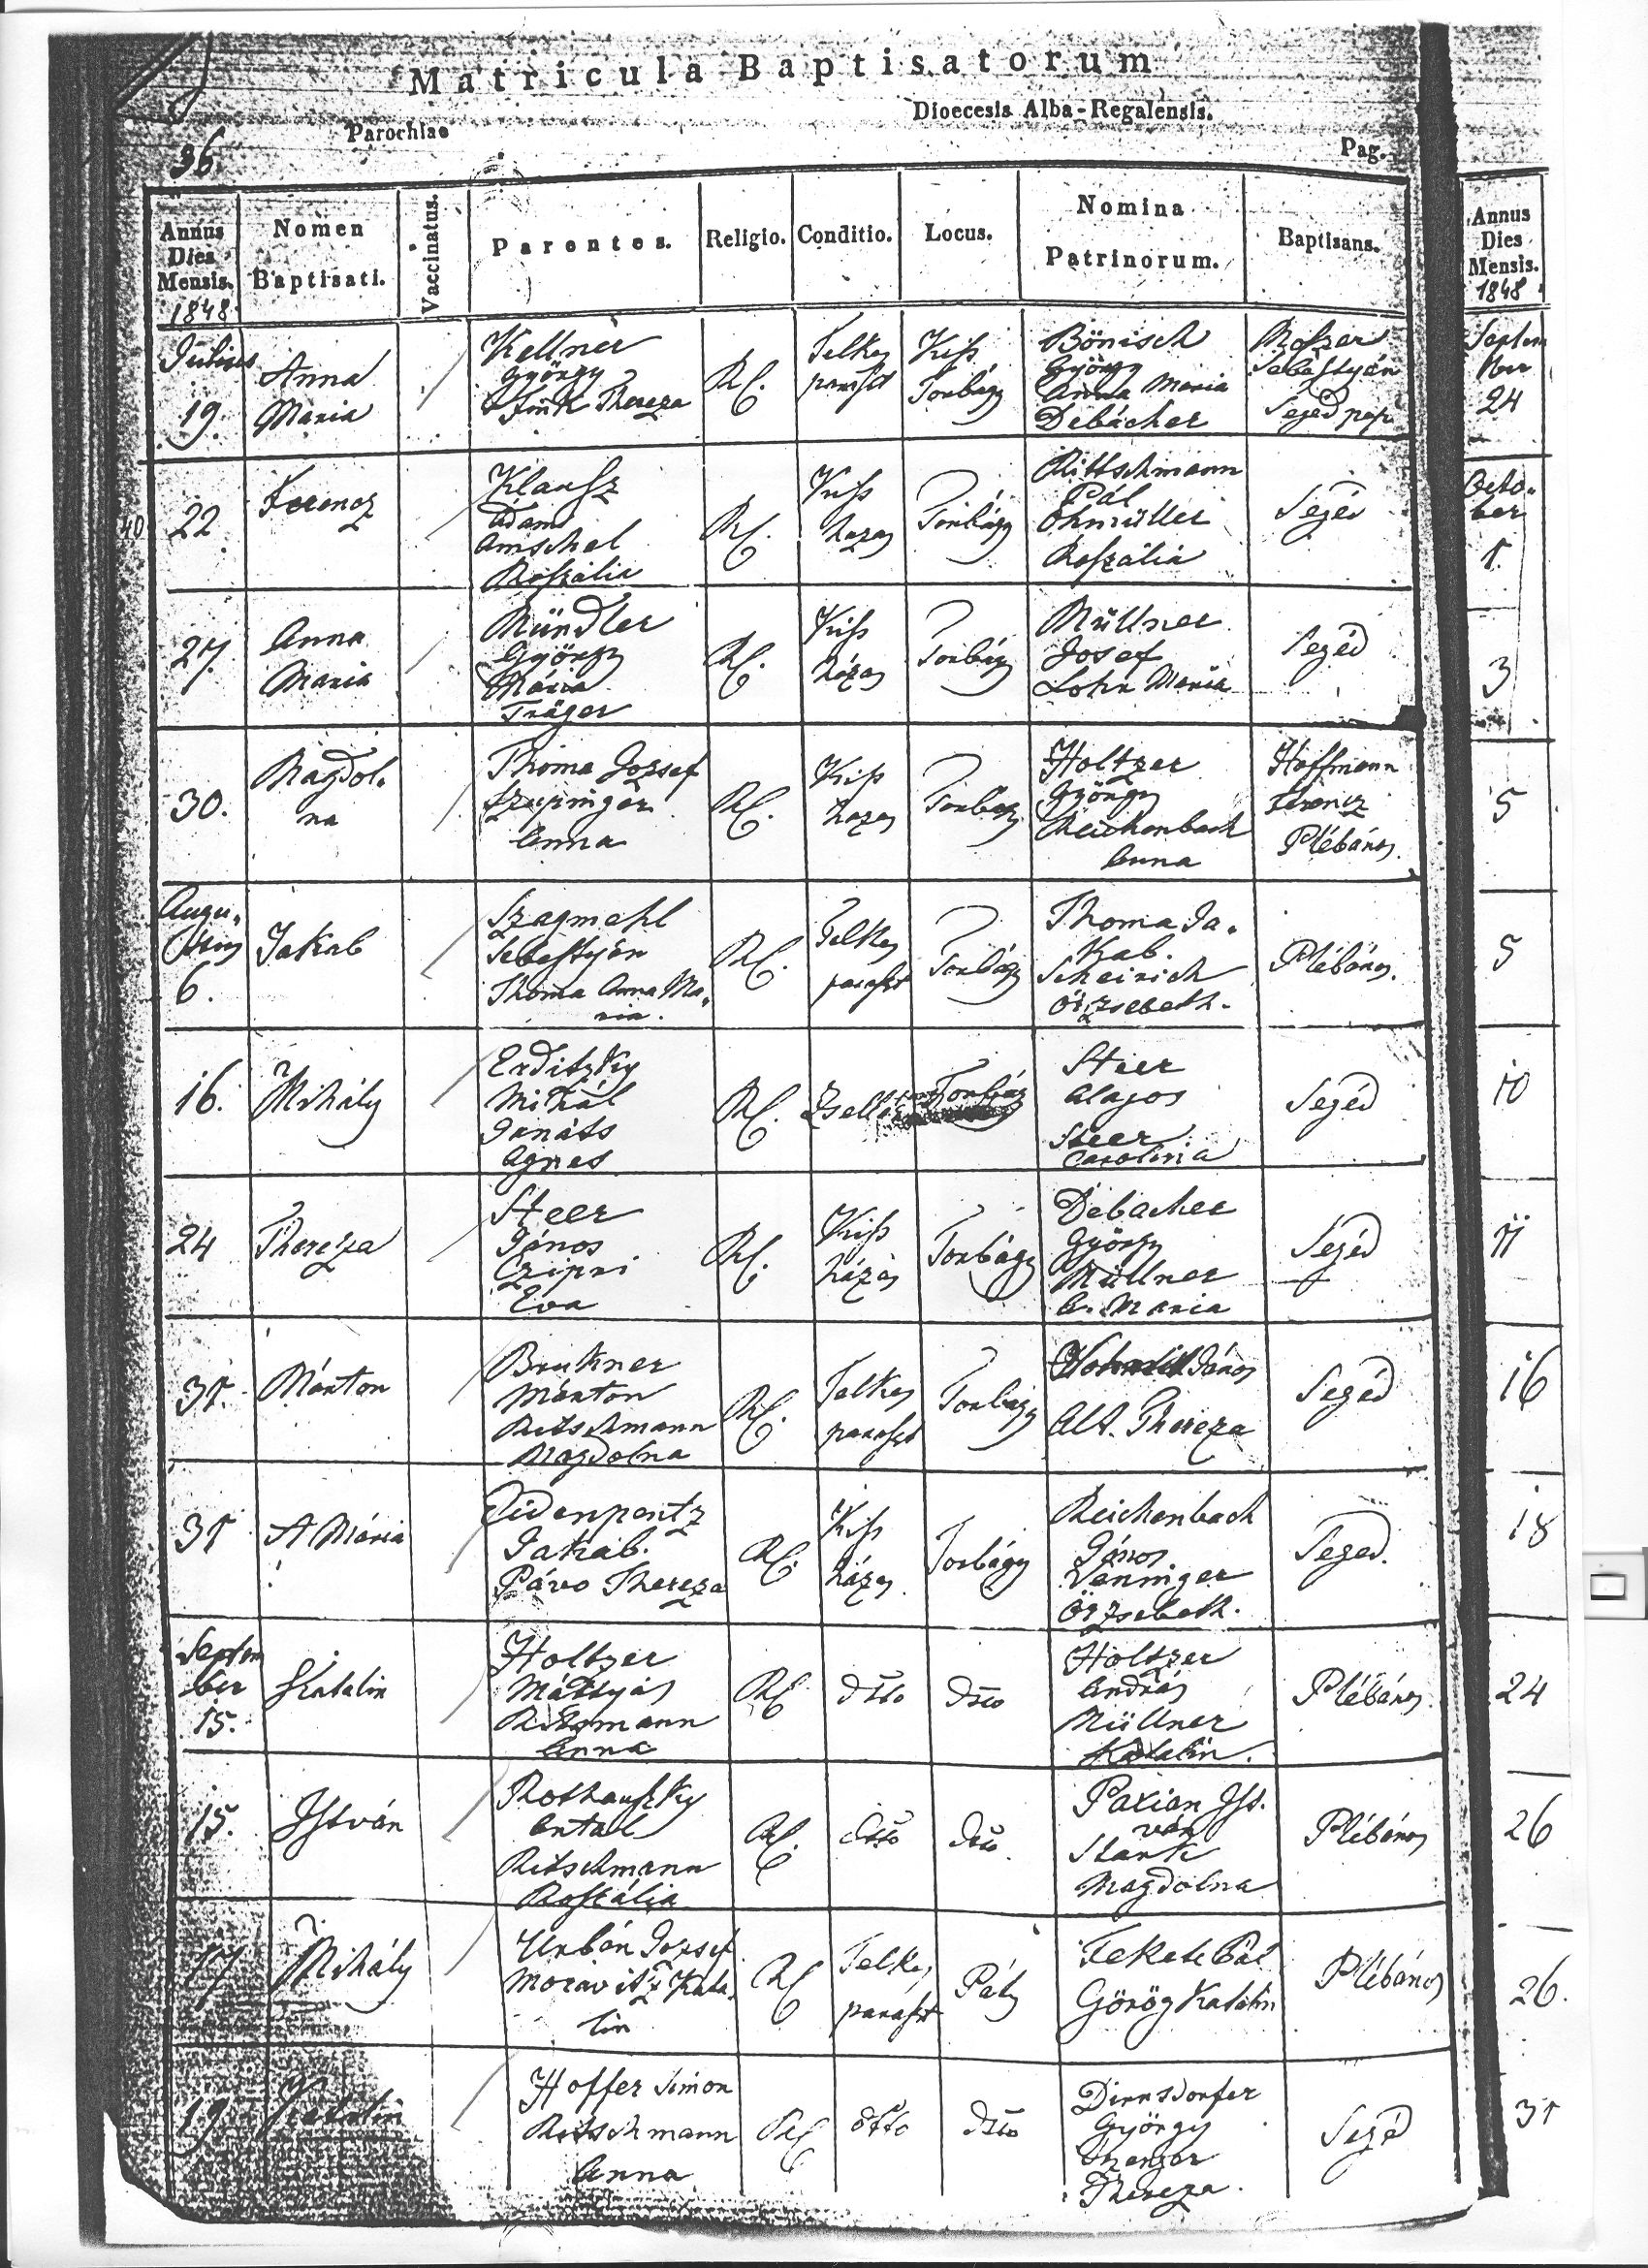 Matricula Baptisatorum
Parochiae
Dioecesis Alba-Regalensis.
36
Pag.
Annus Dies Mensis. 1848
Nomen Baptisati.
Vaccinatus.
Parentes.
Religio.
Conditio.
Locus.
Nomina Patrinorum.
Baptisans.
Julius
19.
Anna
Maria
Kellner
György
Thereza
RC.
Telkes
paraszt
Kiss
Torbágy
Bönisch
György
Anna Maria
Debächer
Sebestyén
Segéd pap
40
22
Ferencz
Klausz
Ádám
Amschel
Roszália
RC.
Kiss
hazas
Torbágy
Rittschmann
Pál
Ohmüller
Roszália
Segéd
27.
Anna
Maria
Mündler
György
Mária
Träger
RC.
Kiss
házas
Torbágy
Müllner
Josef
Lohr Maria
Segéd
30.
Magdol.
na
Thoma Jozsef
Szupinger
Anna
RC.
Kiss
hazas
Torbágy
Holtzer
György
Reichenbach
Anna
Hoffmann
Ferencz
Plébános
Augu.
stus
6.
Jakab
Szagmehl
Sebestyén
Thoma Anna Ma.
ria.
RC.
Telkes
paraszt
Torbágy
Thoma Ja.
kab.
Scheirich
Örzsebeth.
Plébános.
16.
Mihály
Erditzky
Mihál
Ignáts
Agnes
RC.
Zsellér
Torbágy
Steer
Alajos
Steer
Carolina
Segéd
24
Thereza
Steer
János
Czipri
Eva
RC.
Kiss
házas
Torbágy
Debacher
György
Müllner
A. Maria
Segéd
31.
Márton
Brukner
Márton
Ritschmann
Magdolna
RC.
Telkes
paraszt
Torbágy
János
Alt. Thereza
Segéd
31
A Mária
Eidenpentz
Jakab.
Pávo Thereza
RC.
Kiss
házas
Torbágy
Reichenbach
János.
Venninger
Örzsebeth.
Segéd.
Septem
ber
15.
Katalin
Holtzer
Mátyás
Ritzmann
Anna
RC
dtto
dtto
Holtzer
András
Müllner
Katalin.
Plébános
15.
István
Rothauszky
Antal
Ritschmann
Roszália
RC.
dtto
dtto
Paxian Ist.
ván
Stark
Magdolna
Plébános
17
Mihály
Urbán Jozsef
Moravitz Kata.
lin
RC
Telkes
paraszt
Páty
Fekete Pál
Görög Katalin
Plébános
19
Katalin
Hoffer Simon
Ritschmann
Anna
RC
dtto
dtto
Dirnsdorfer
György
Thereza.
Segéd
Annus Dies Mensis. 1848
Septem
ber
24
Octo.
ber
1.
3
5
5
10
11
16
18
24
26
26.
31